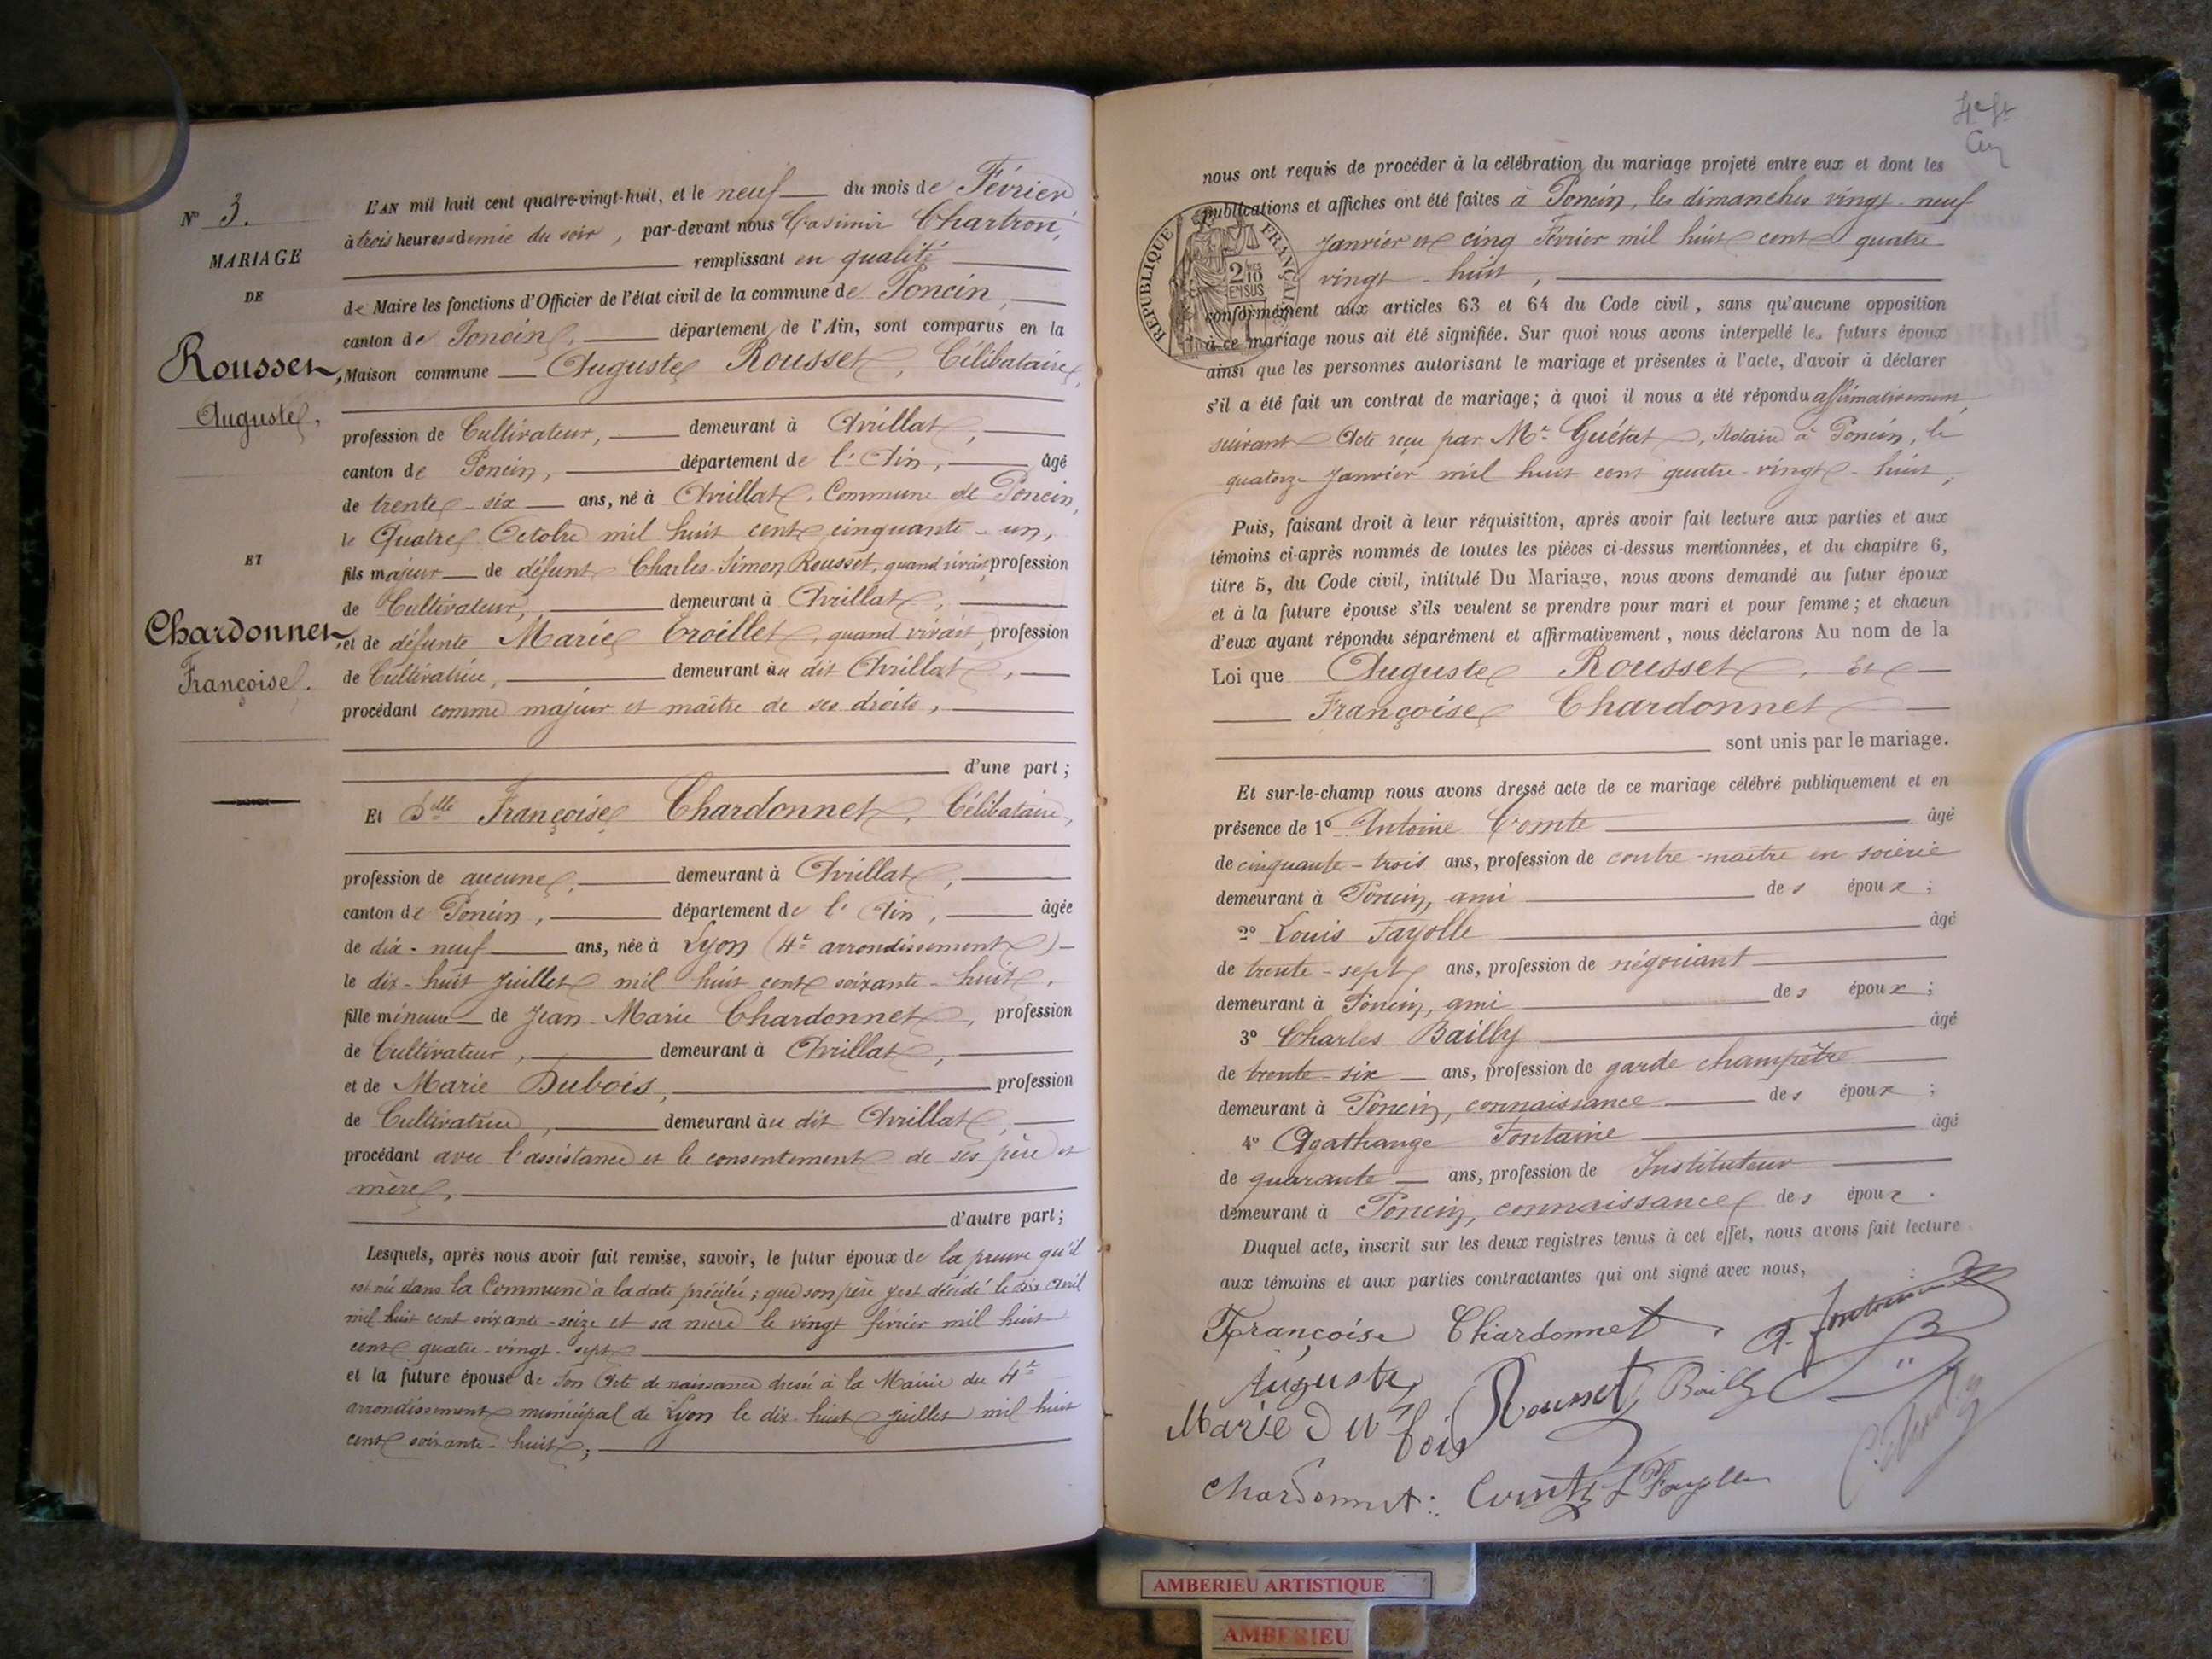 N° 3.
MARIAGE
DE
Rousset,
Auguste,
ET
Chardonnet,
Françoise.
L'AN mil huit cent quatre-vingt-huit, et le neuf du mois de Février
à trois heures & demie du soir, par-devant nous Casimir Chartron,
remplissant en qualité
de Maire les fonctions d'Officier de l'état civil de la commune de Poncin,
canton de Poncin, département de l'Ain, sont comparus en la
Maison commune Auguste Rousset, Célibataire,
profession de Cultivateur, demeurant à Avrillat,
canton de Poncin, département de l'Ain, âgé
de trente-six ans, né à Avrillat, Commune de Poncin,
le Quatre Octobre mil huit cent cinquante-un,
fils majeur de défunt Charles-Simon Rousset, quand vivait, profession
de Cultivateur, demeurant à Avrillat,
et de défunte Marie Croillet, quand vivait, profession
de Cultivatrice, demeurant au dit Avrillat,
procédant comme majeur et maître de ses droits,
d'une part;
Et Dlle Françoise Chardonnet, Célibataire,
profession de aucune, demeurant à Avrillat,
canton de Poncin, département de l'Ain, âgée
de dix-neuf ans, née à Lyon (4e arrondissement)
le dix-huit Juillet mil huit cent soixante-huit,
fille mineure de Jean-Marie Chardonnet, profession
de Cultivateur, demeurant à Avrillat,
et de Marie Dubois, profession
de Cultivatrice, demeurant au dit Avrillat,
procédant avec l'assistance et le consentement de ses père et
mère,
d'autre part;
Lesquels, après nous avoir fait remise, savoir, le futur époux de la preuve qu'il
est né dans la Commune à la date précitée; que son père y est décédé le dix Avril
mil huit cent soixante-seize et sa mère le vingt février mil huit
cent quatre-vingt-sept
et la future épouse de son Acte de naissance dressé à la Mairie du 4e
arrondissement municipal de Lyon le dix-huit Juillet mil huit
cent soixante-huit;
nous ont requis de procéder à la célébration du mariage projeté entre eux et dont les
publications et affiches ont été faites à Poncin, les dimanches vingt-neuf
Janvier et cinq Février mil huit cent quatre-
vingt-huit,
REPUBLIQUE FRANÇAISE
2/10 EN SUS
conformément aux articles 63 et 64 du Code civil, sans qu'aucune opposition
à ce mariage nous ait été signifiée. Sur quoi nous avons interpellé les futurs époux
ainsi que les personnes autorisant le mariage et présentes à l'acte, d'avoir à déclarer
s'il a été fait un contrat de mariage; à quoi il nous a été répondu affirmativement,
suivant Acte reçu par Me Guétat, Notaire à Poncin, le
quatorze Janvier mil huit cent quatre-vingt-huit,
Puis, faisant droit à leur réquisition, après avoir fait lecture aux parties et aux
témoins ci-après nommés de toutes les pièces ci-dessus mentionnées, et du chapitre 6,
titre 5, du Code civil, intitulé Du Mariage, nous avons demandé au futur époux
et à la future épouse s'ils veulent se prendre pour mari et pour femme; et chacun
d'eux ayant répondu séparément et affirmativement, nous déclarons Au nom de la
Loi que Auguste Rousset, et
Françoise Chardonnet
sont unis par le mariage.
Et sur-le-champ nous avons dressé acte de ce mariage célébré publiquement et en
présence de 1° Antoine Comte âgé
de cinquante-trois ans, profession de contre-maître en soierie
demeurant à Poncin, ami des époux;
2° Louis Fayolle âgé
de trente-sept ans, profession de négociant
demeurant à Poncin, ami des époux;
3° Charles Bailly âgé
de trente-six ans, profession de garde champêtre
demeurant à Poncin, connaissance des époux;
4° Agathange Fontaine âgé
de quarante ans, profession de Instituteur
demeurant à Poncin, connaissance des époux.
Duquel acte, inscrit sur les deux registres tenus à cet effet, nous avons fait lecture
aux témoins et aux parties contractantes qui ont signé avec nous,
Françoise Chardonnet. A. Fontaine
Auguste Rousset Bailly
Marie Dubois
Chardonnet: Comte L Fayolle
AMBERIEU ARTISTIQUE
AMBERIEU